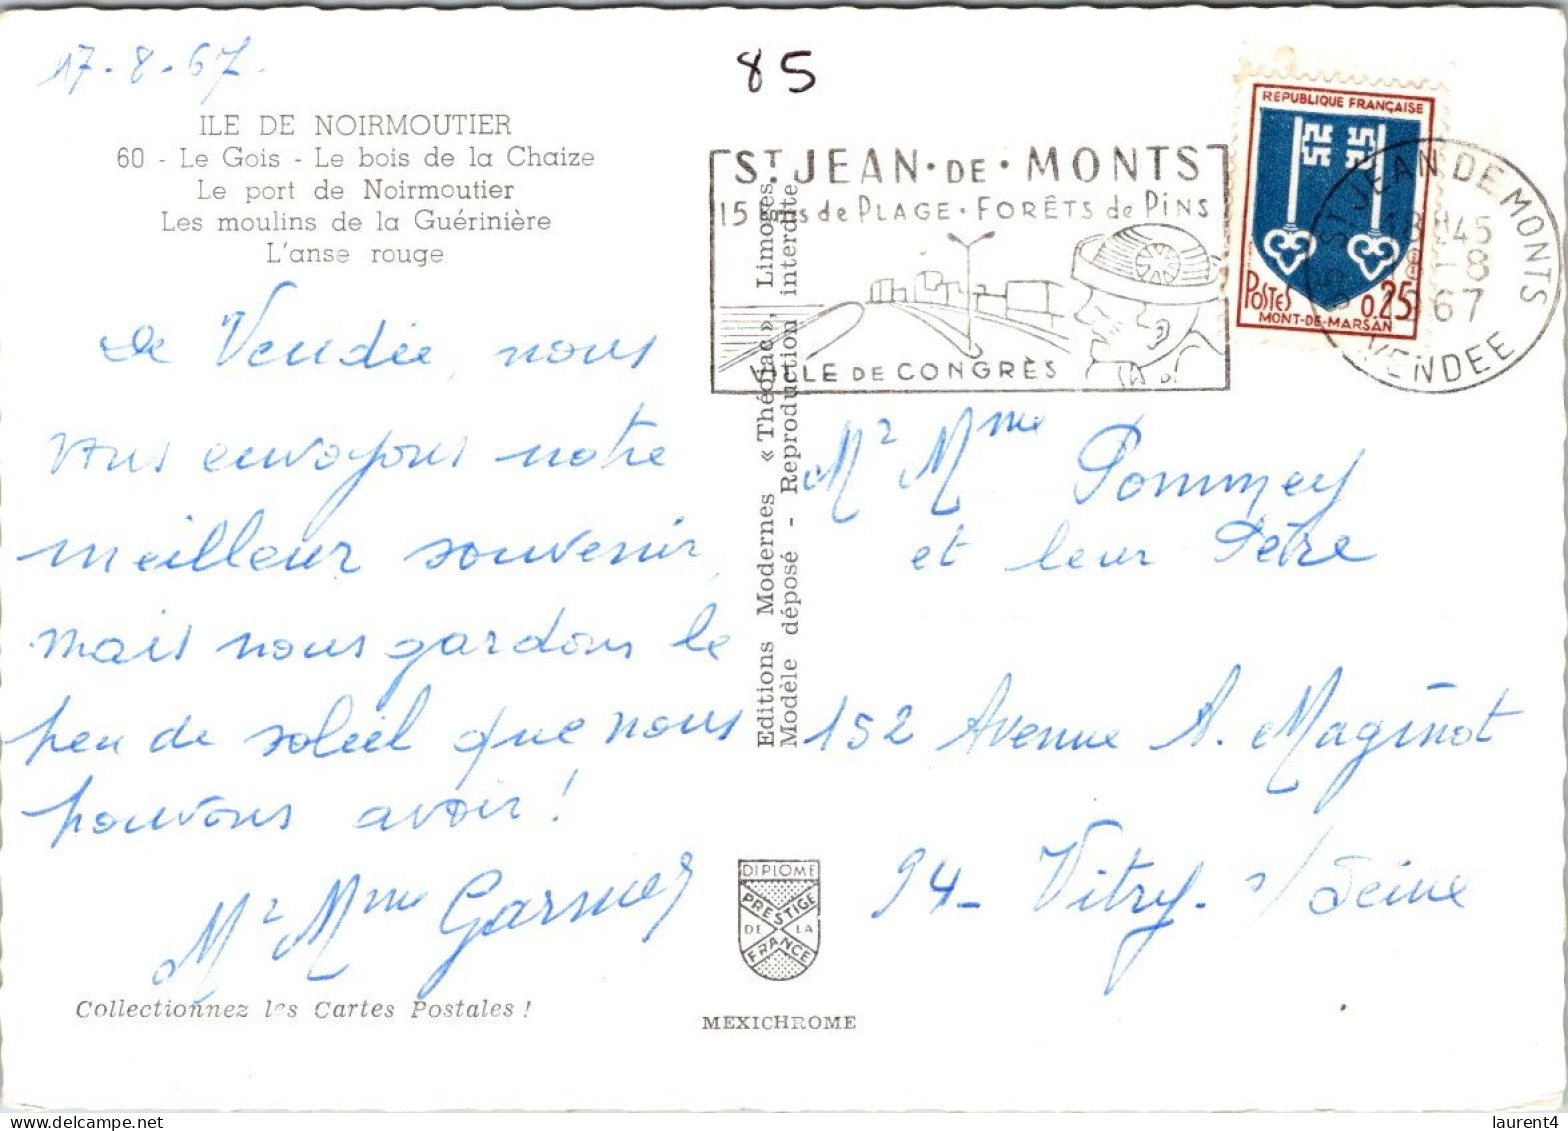 17.8.67.
85
ILE DE NOIRMOUTIER
60 - Le Gois - Le bois de la Chaize
Le port de Noirmoutier
Les moulins de la Guérinière
L'anse rouge
de Vendée, nous
vous envoyons notre
meilleur souvenir,
mais nous gardons le
peu de soleil que nous
pouvons avoir !
Mr Mme Garnier
Collectionnez les Cartes Postales !
Editions Modernes « Théojac », Limoges
Modèle déposé - Reproduction interdite
DIPLOME
PRESTIGE
DE LA
FRANCE
MEXICHROME
ST JEAN·DE·MONTS
15 de PLAGE · FORÊTS de PINS
VILLE DE CONGRÈS
REPUBLIQUE FRANÇAISE
POSTES 0,25
MONT-DE-MARSAN
ST JEAN DE MONTS
18H45
-8
1967
VENDEE
Mr Mme Pommey
et leur Père
152 Avenue A. Maginot
94 - Vitry s/ Seine
laurent4